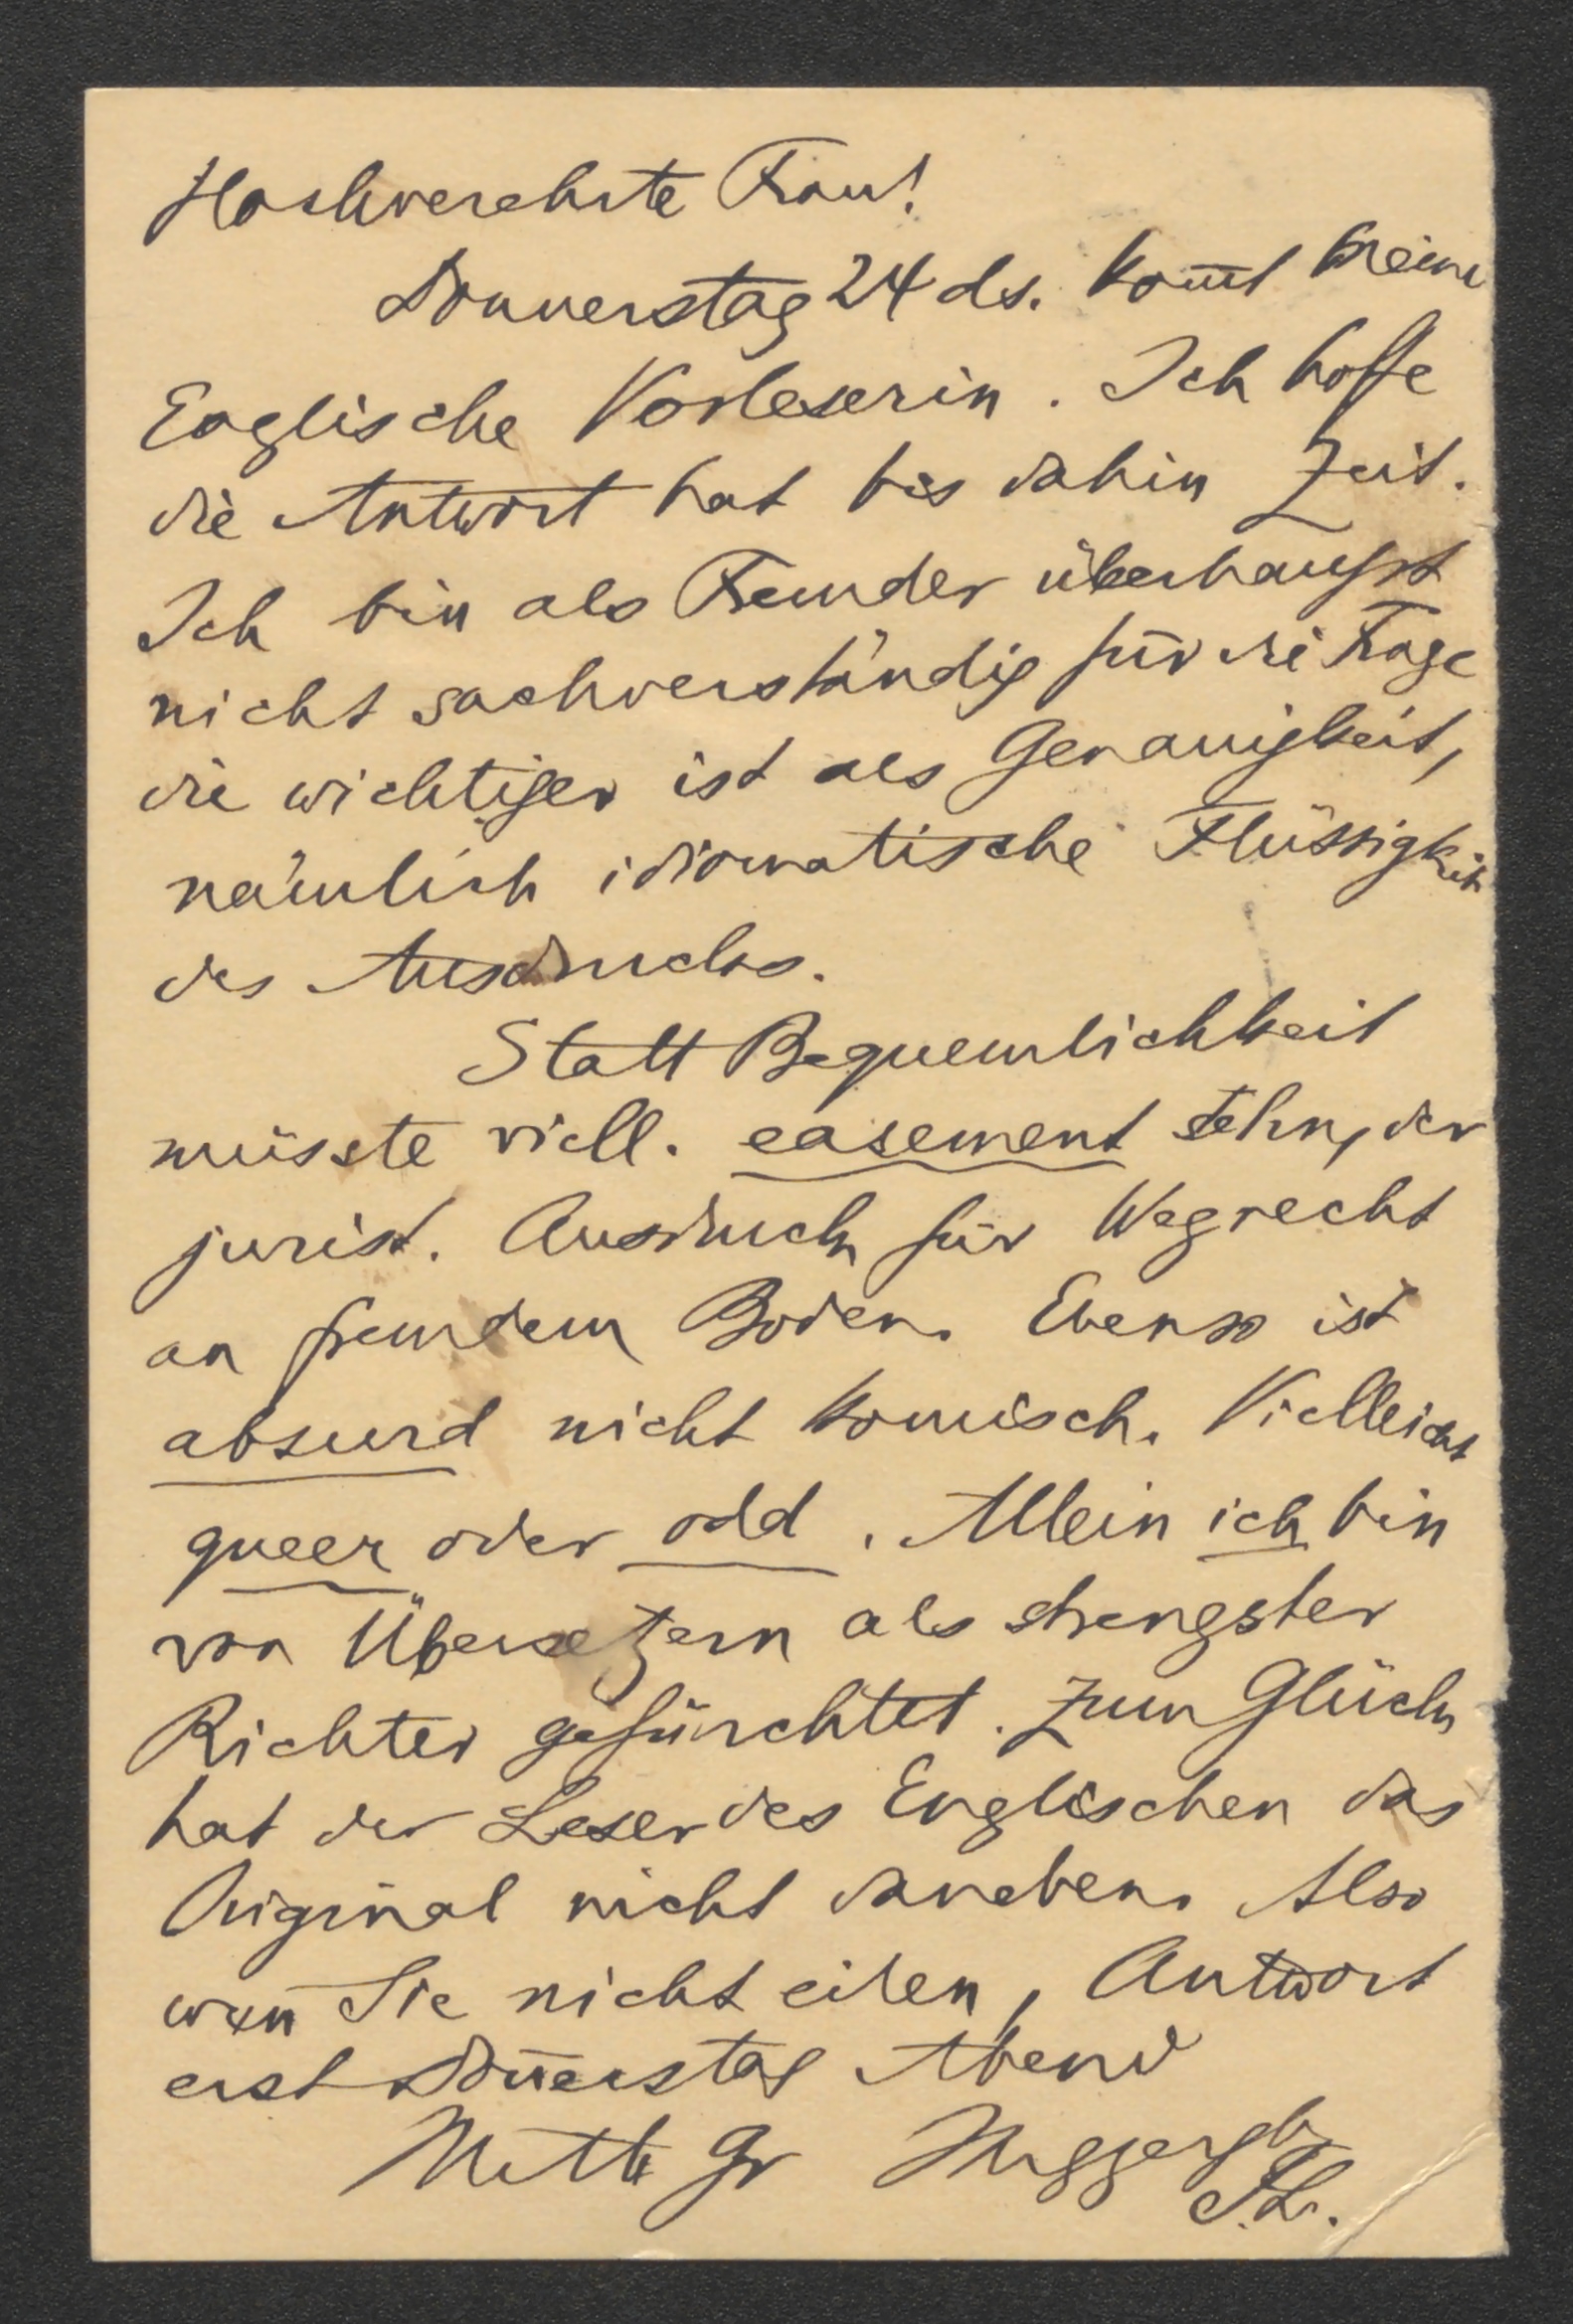 Hochverehrte Frau!
Donnerstag 24 ds. kom̅t meine
Englische Vorleserin. Ich hoffe
die Antwort hat bis dahin Zeit.
Ich bin als Fremder überhaupt
nicht sachverständig für die Frage
die wichtiger ist als Genauigkeit,
nämlich idiomatische Flüssigkeit
des Ausdrucks.
Statt Bequemlichkeit
müsste viell. easement stehn, der
jurist. Ausdruck für Wegrecht
an fremdem Boden. Ebenso ist
absurd nicht komisch. Vielleicht
queer oder odd. Allein ich bin
von Übersetzern als strengster
Richter gefürchtet. Zum Glück
hat der Leser des Englischen das
Original nicht daneben. Also
wen̅ Sie nicht eilen, Antwort
erst Don̅erstag Abend
Gr